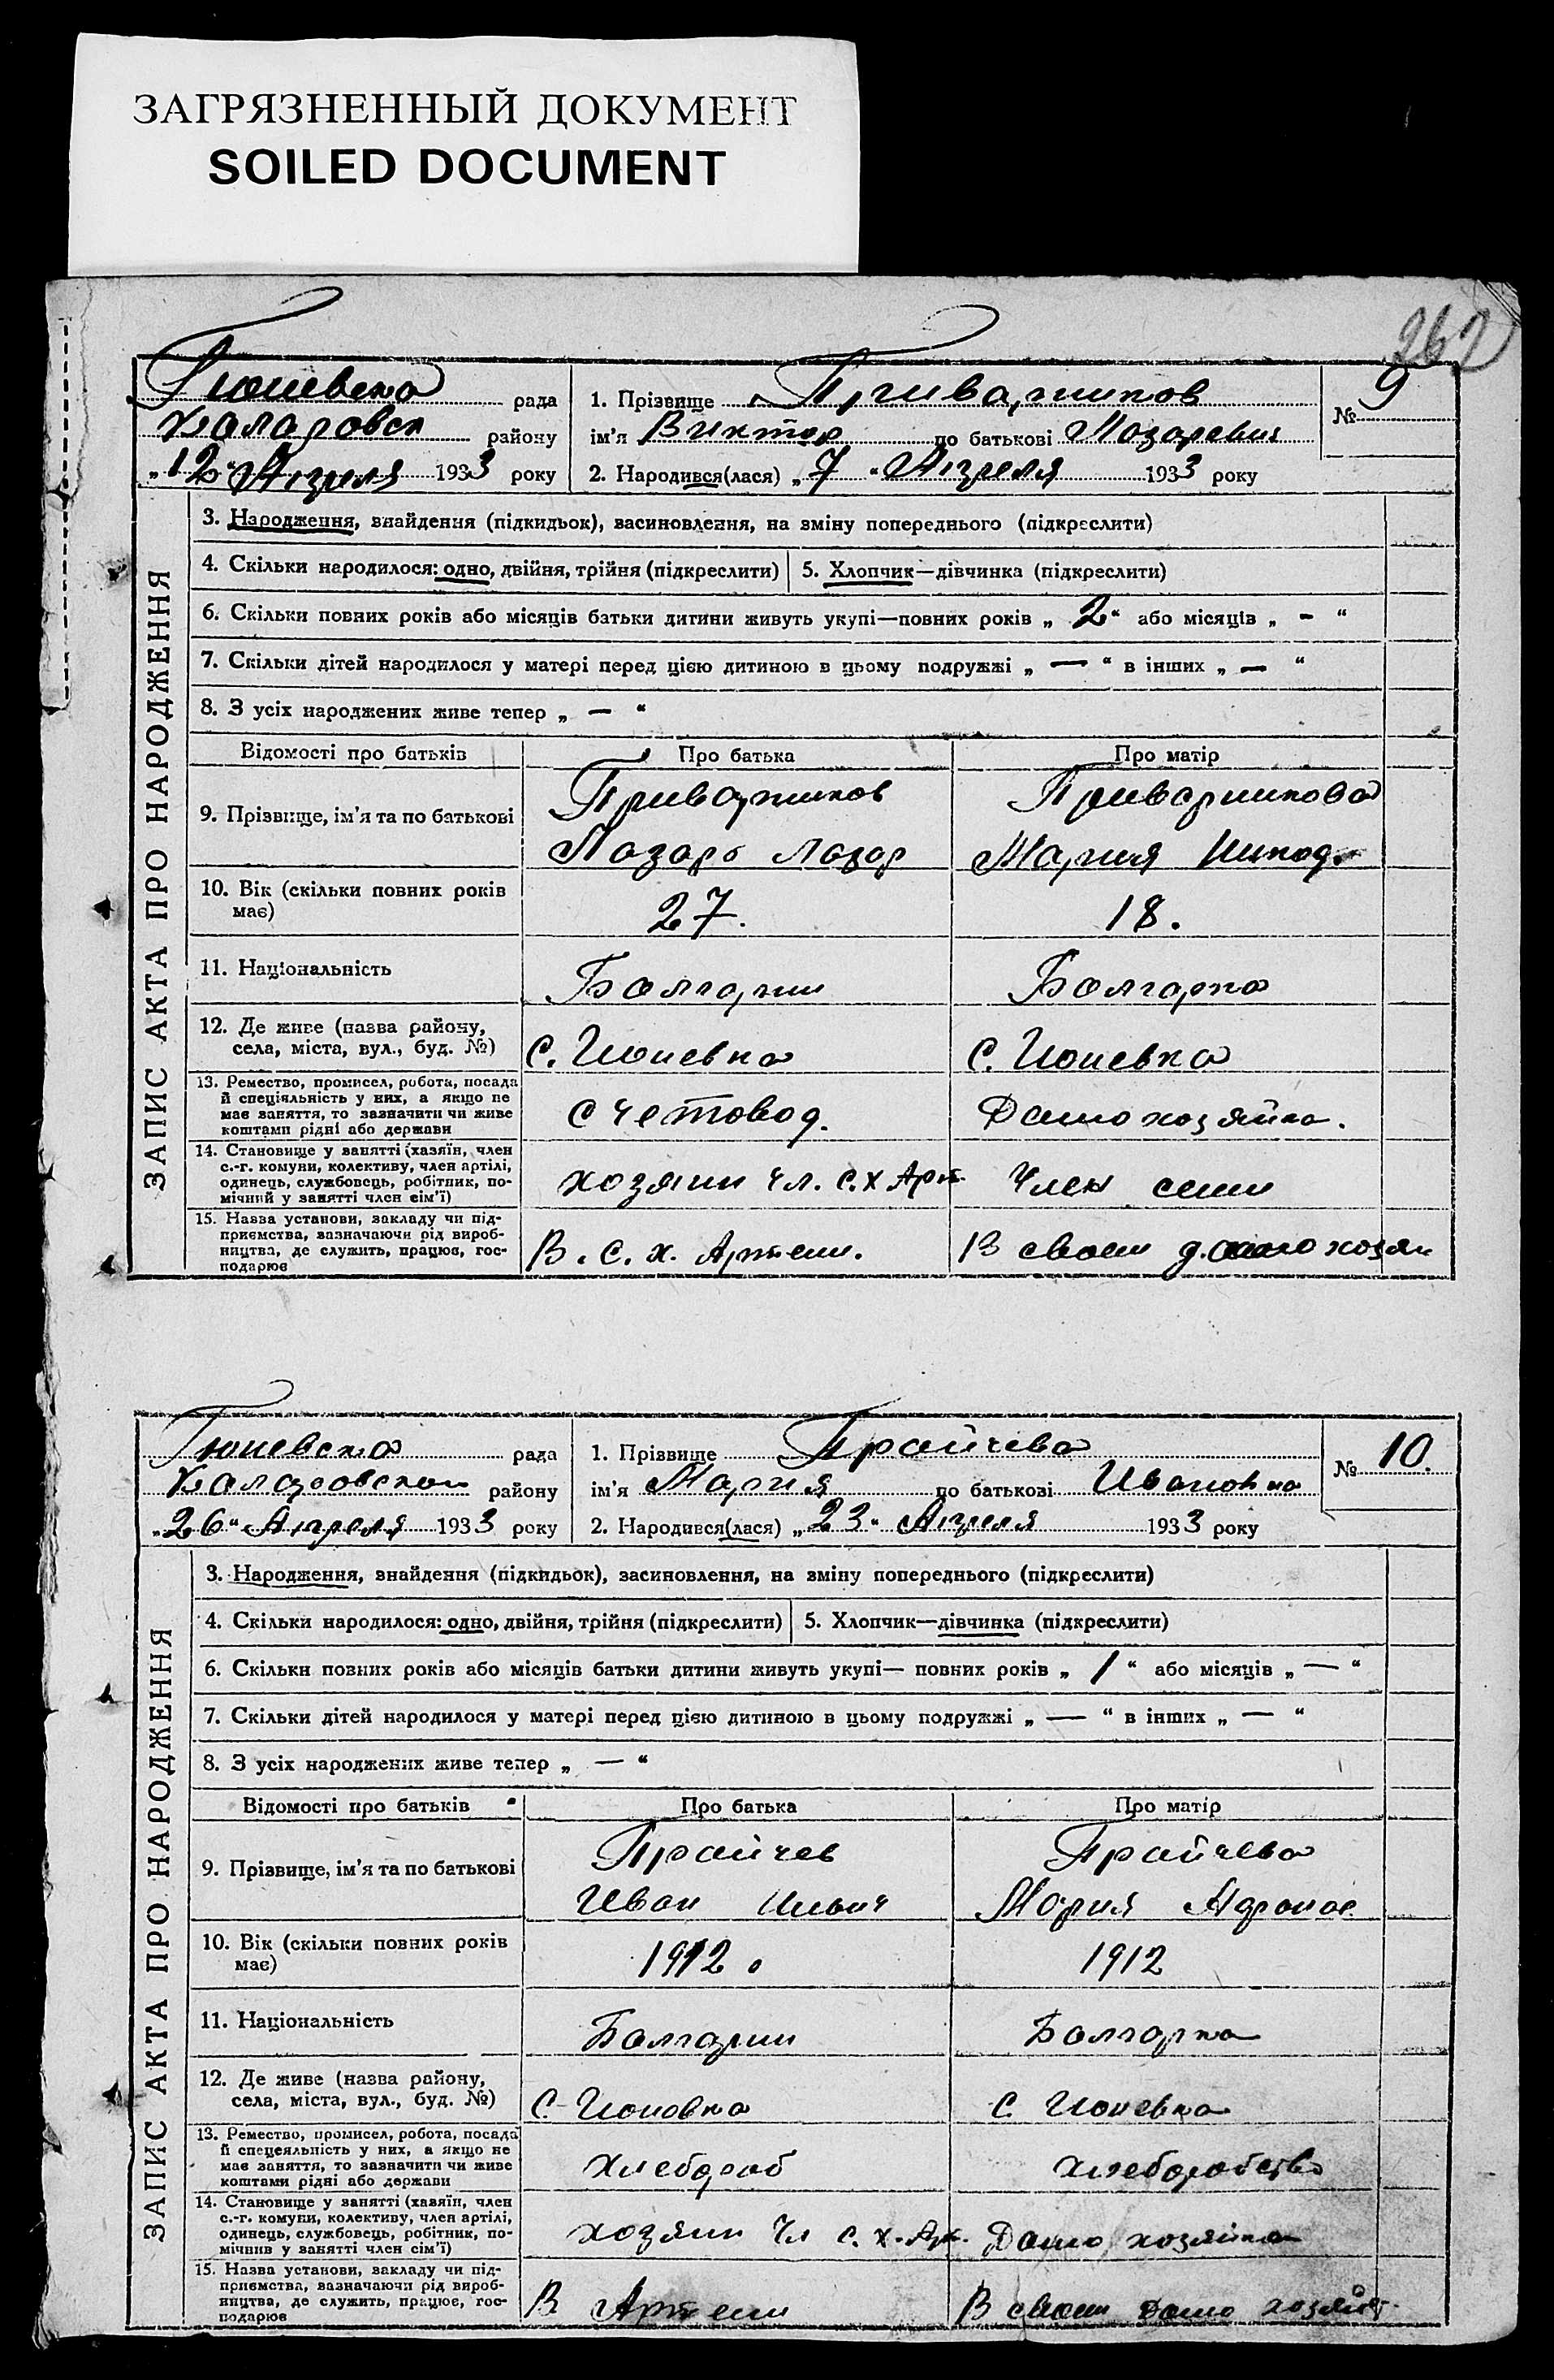 ЗАГРЯЗНЕННЫЙ ДОКУМЕНТ
SOILED DOCUMENT
262
Гюневска рада
Коларовск району
„12" Апреля 1933 року
1. Прізвище Приварников
ім'я Виктор по батькові Лазаревич
2. Народився(лася) „7" Апреля 1933 року
№ 9
ЗАПИС АКТА ПРО НАРОДЖЕННЯ
3. Народження, знайдення (підкидьок), засиновлення, на зміну попереднього (підкреслити)
4. Скільки народилося: одно, двійня, трійня (підкреслити) 5. Хлопчик—дівчинка (підкреслити)
6. Скільки повних років або місяців батьки дитини живуть укупі—повних років „ 2 " або місяців „ - "
7. Скільки дітей народилося у матері перед цією дитиною в цьому подружжі „ — " в інших „ — "
8. З усіх народжених живе тепер „ — "
Відомості про батьків Про батька Про матір
9. Прізвище, ім'я та по батькові
Приварников Приварникова
Лазарь Лазар Мария
10. Вік (скільки повних років
має)
27. 18.
11. Національність
Болгарин Болгарка
12. Де живе (назва району,
села, міста, вул., буд. №)
с. Гюневка с. Гюневка
13. Ремество, промисел, робота, посада
й спеціяльність у них, а якщо не
має заняття, то зазначити чи живе
коштами рідні або держави
счетовод. Домохозяйка.
14. Становище у занятті (хазяїн, член
с.-г. комуни, колективу, член артілі,
одинець, службовець, робітник, по-
мічний у занятті член сім'ї)
хозяин чл. с. х Арт. Член семи
15. Назва установи, закладу чи під-
приємства, зазначаючи рід вироб-
ництва, де служить, працює, гос-
подарює
В. С. х. Артели. В своем домохозяи
Гюневска рада
Коларовском району
„26" Апреля 1933 року
1. Прізвище Прайчева
ім'я Мария по батькові Ивановна
2. Народився(лася) „23" Апреля 1933 року
№ 10.
ЗАПИС АКТА ПРО НАРОДЖЕННЯ
3. Народження, знайдення (підкидьок), засиновлення, на зміну попереднього (підкреслити)
4. Скільки народилося: одно, двійня, трійня (підкреслити) 5. Хлопчик—дівчинка (підкреслити)
6. Скільки повних років або місяців батьки дитини живуть укупі— повних років „ 1 " або місяців „ — "
7. Скільки дітей народилося у матері перед цією дитиною в цьому подружжі „ — " в інших „ — "
8. З усіх народжених живе тепер „ — "
Відомості про батьків Про батька Про матір
9. Прізвище, ім'я та по батькові
Прайчев Прайчева
Иван Ильич Мария
10. Вік (скільки повних років
має)
1912. 1912
11. Національність
Болгарин Болгарка
12. Де живе (назва району,
села, міста, вул., буд. №)
С. Гюновка С. Гюневка
13. Ремество, промисел, робота, посада
й спецеяльність у них, а якщо не
має заняття, то зазначити чи живе
коштами рідні або держави
хлебороб хлеборобство
14. Становище у занятті (хазяїн, член
с.-г. комуни, колективу, член артілі,
одинець, службовець, робітник, по-
мічнив у занятті член сім'ї)
хозяин Чл с. х. Арт. Домохозяйка
15. Назва установи, закладу чи під-
приємства, зазначаючи рід вироб-
ництва, де служить, працює, гос-
подарює
В Артели В своем домо хозяйст.